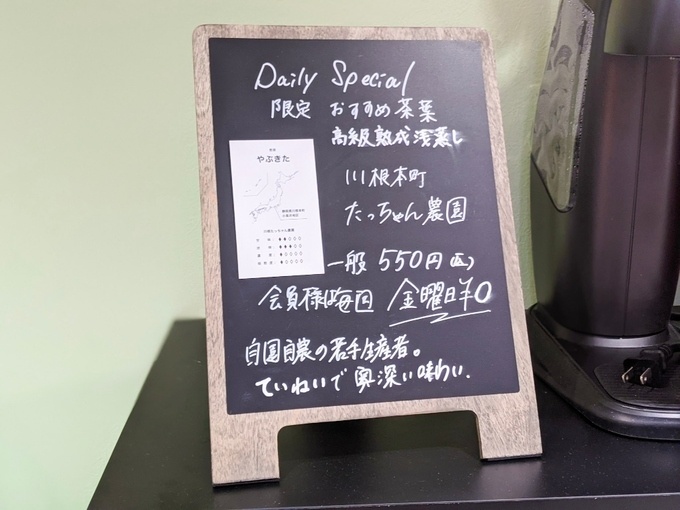 Daily Special
限定 おすすめ茶葉
高級熟成浅蒸し
やぶきた
川根本町
たっちゃん農園
一般 550円(込)
会員様は毎回 金曜日¥0
自園自農の若手生産者。
ていねいで奥深い味わい.